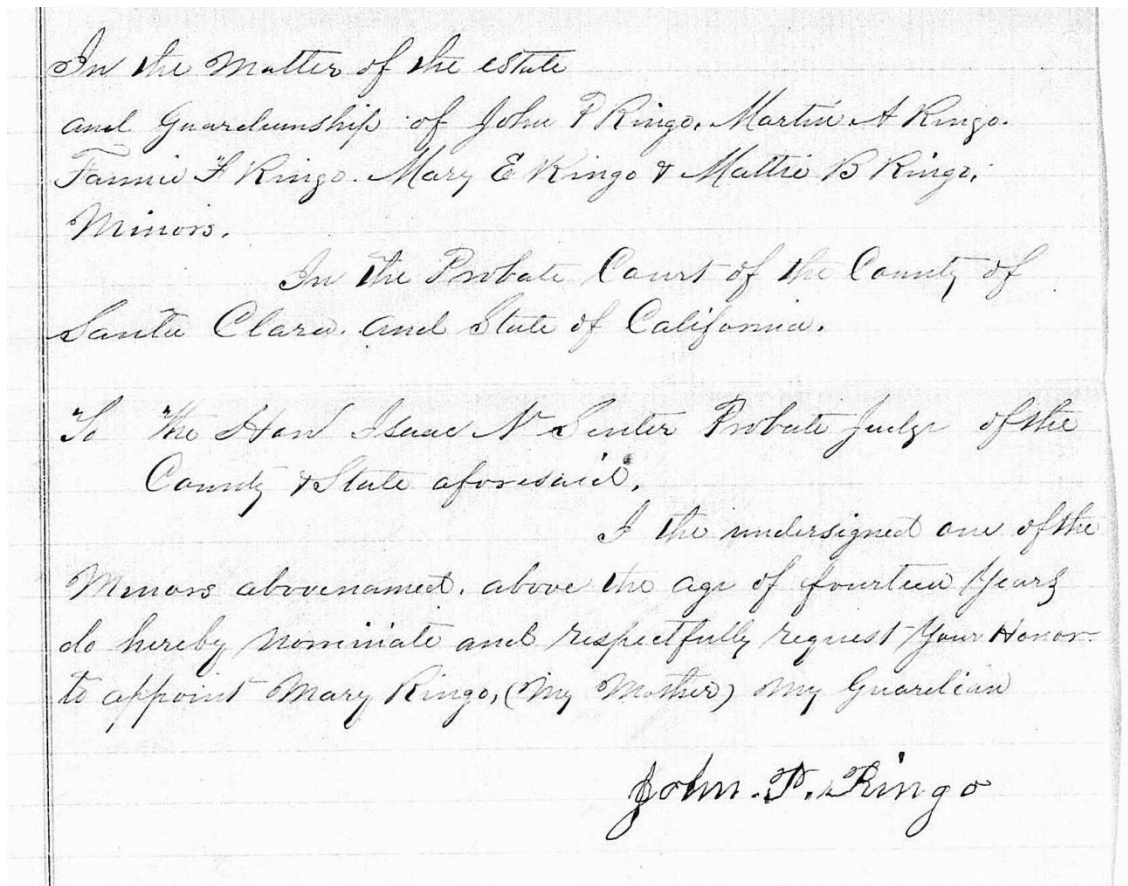 In the Matter of the estate
and Guardianship of John P Ringo, Martin A Ringo.
Fannie F Ringo. Mary E Ringo & Mattie B Ringo,
Minors.
In the Probate Court of the County of
Santa Clara. and State of California.
To the Hon Isaac N Senter Probate Judge of the
County & State aforesaid.
I the undersigned one of the
Minors abovenamed. above the age of fourteen Years
do hereby Nominate and respectfully request Your Honor
to appoint Mary Ringo, (My Mother) My Guardian
John. P. Ringo